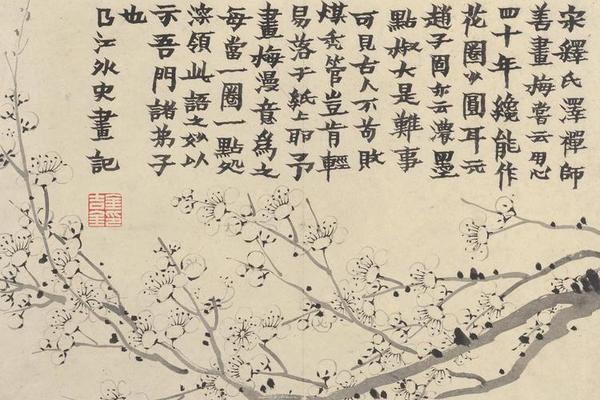 宋釋氏澤禪師
善畫梅嘗云用心
四十年纔能作
花圈少圓耳元
趙子固亦云濃墨
點椒大是難事
可見古人不苟敗
煤禿管豈肯輕
易落于紙上耶予
畫梅漫意為之
每當一圈一點処
深領此語之妙以
示吾門諸弟子
也
江外史畫記